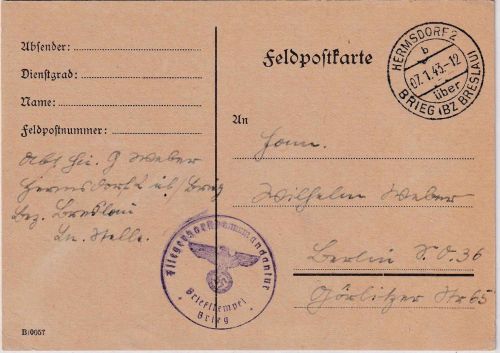 Absender:
Dienstgrad:
Name:
Feldpostnummer:
Abs. G Weber
Hermsdorf üb/Brieg
Bez. Breslau
Ln. Stelle.
B/0657
Feldpostkarte
HERMSDORF 2
b
07.1.43.-12
über
BRIEG (BZ BRESLAU)
An
Wilhelm Weber
Berlin S.O.36
Görlitzer Str 65
Fliegerhorstkommandantur
Briefstempel
Brieg